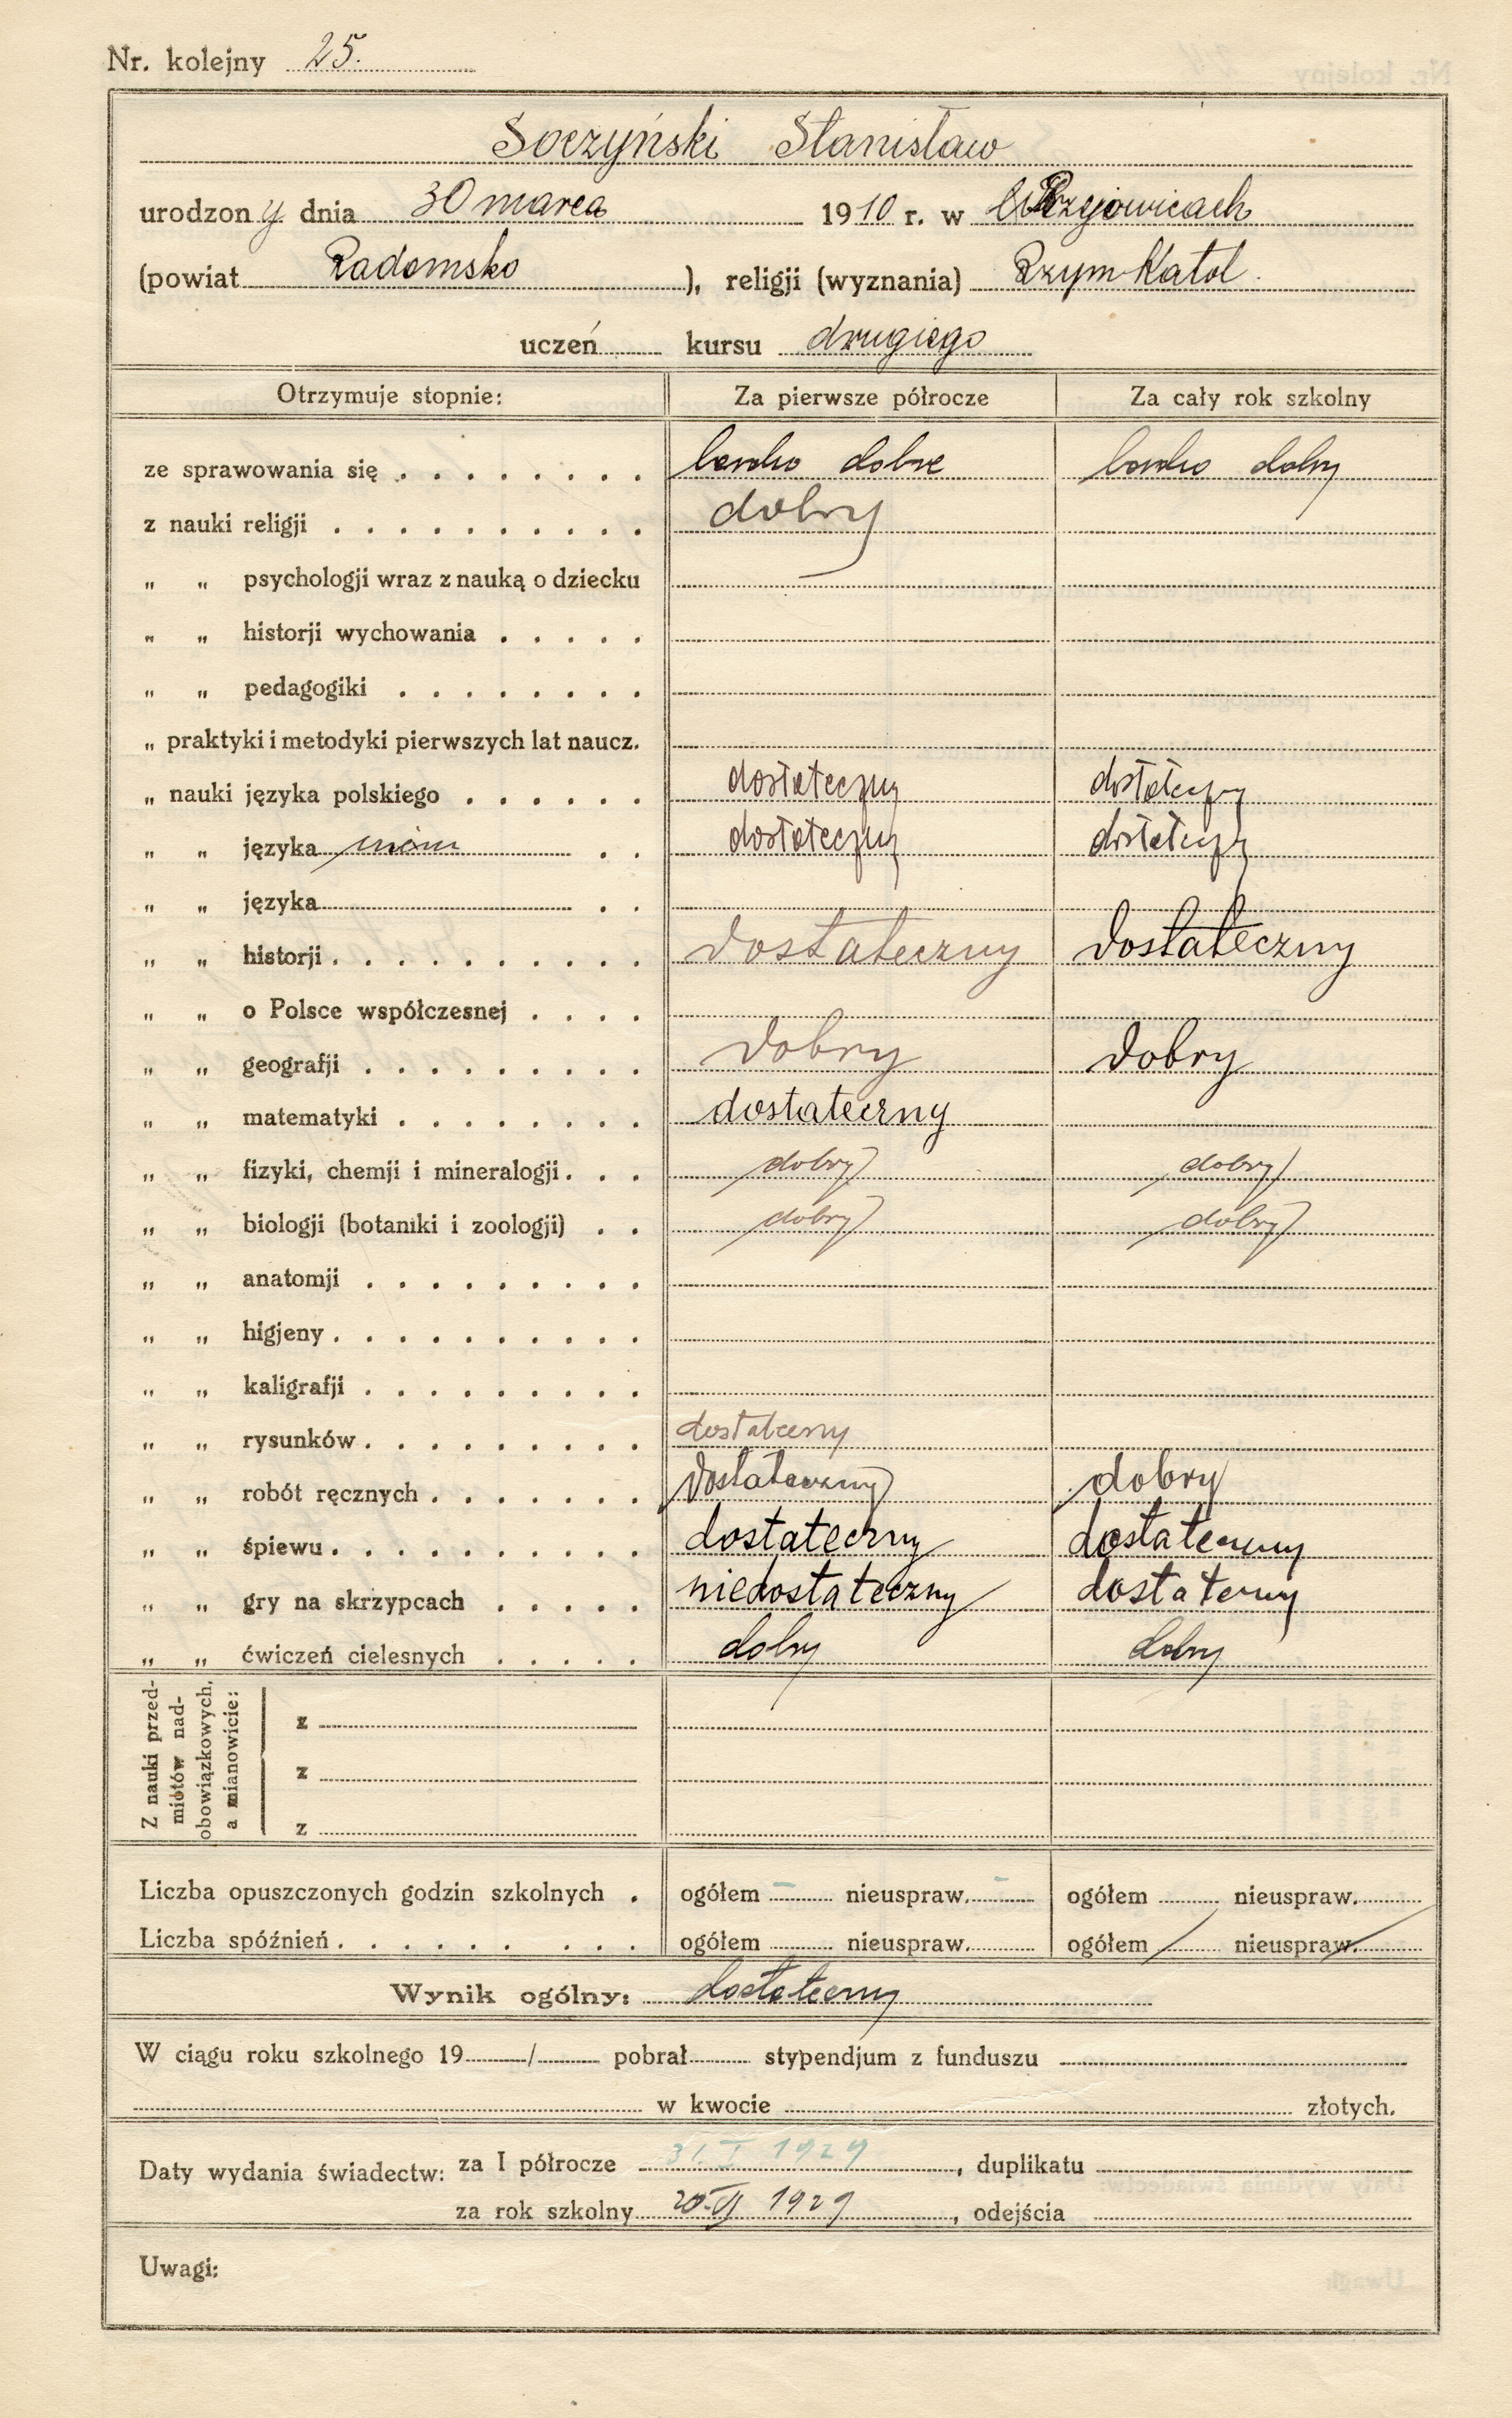 Nr. kolejny 25.
Soczyński Stanisław
urodzony dnia 30 marca 1910 r. w
(powiat Radomsko), religji (wyznania) Rzym Katol.
uczeń kursu drugiego
Otrzymuje stopnie: Za pierwsze półrocze Za cały rok szkolny
ze sprawowania się . . . . . . . . bardzo dobre bardzo dobry
z nauki religji . . . . . . . . . . dobry
„ „ psychologji wraz z nauką o dziecku
„ „ historji wychowania . . . . .
„ „ pedagogiki . . . . . . . .
„ praktyki i metodyki pierwszych lat naucz.
„ nauki języka polskiego . . . . . . dostateczny dostateczny
„ „ języka niem . . dostateczny dostateczny
„ „ języka . .
„ „ historji . . . . . . . . . . dostateczny dostateczny
„ „ o Polsce współczesnej . . . .
„ „ geografji . . . . . . . . . dobry dobry
„ „ matematyki . . . . . . . . dostateczny
„ „ fizyki, chemji i mineralogji . . . dobry dobry
„ „ biologji (botaniki i zoologji) . . dobry dobry
„ „ anatomji . . . . . . . . .
„ „ higjeny . . . . . . . . . .
„ „ kaligrafji . . . . . . . . .
„ „ rysunków . . . . . . . . . dostateczny
„ „ robót ręcznych . . . . . . . dostateczny dobry
„ „ śpiewu . . . . . . . . . . dostateczny dostateczny
„ „ gry na skrzypcach . . . . . niedostateczny dostateczny
„ „ ćwiczeń cielesnych . . . . . dobry dobry
Z nauki przed-
miotów nad-
obowiązkowych,
a mianowicie:
z
z
z
Liczba opuszczonych godzin szkolnych . ogółem – nieuspraw. – ogółem nieuspraw.
Liczba spóźnień . . . . . . . . . ogółem nieuspraw. ogółem / nieuspraw. /
Wynik ogólny: dostateczny
W ciągu roku szkolnego 19 / pobrał stypendjum z funduszu
w kwocie złotych.
Daty wydania świadectw: za I półrocze 31. I 1929, duplikatu
za rok szkolny 20. VI 1929, odejścia
Uwagi: